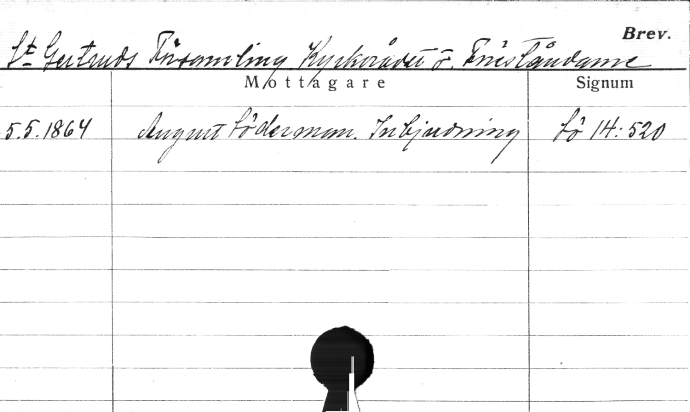 Brev.
St Gertruds Församling Kyrkorådet o. Föreståndarne
Mottagare Signum
5.5.1864 August Söderman. Inbjudning Sö 14:520